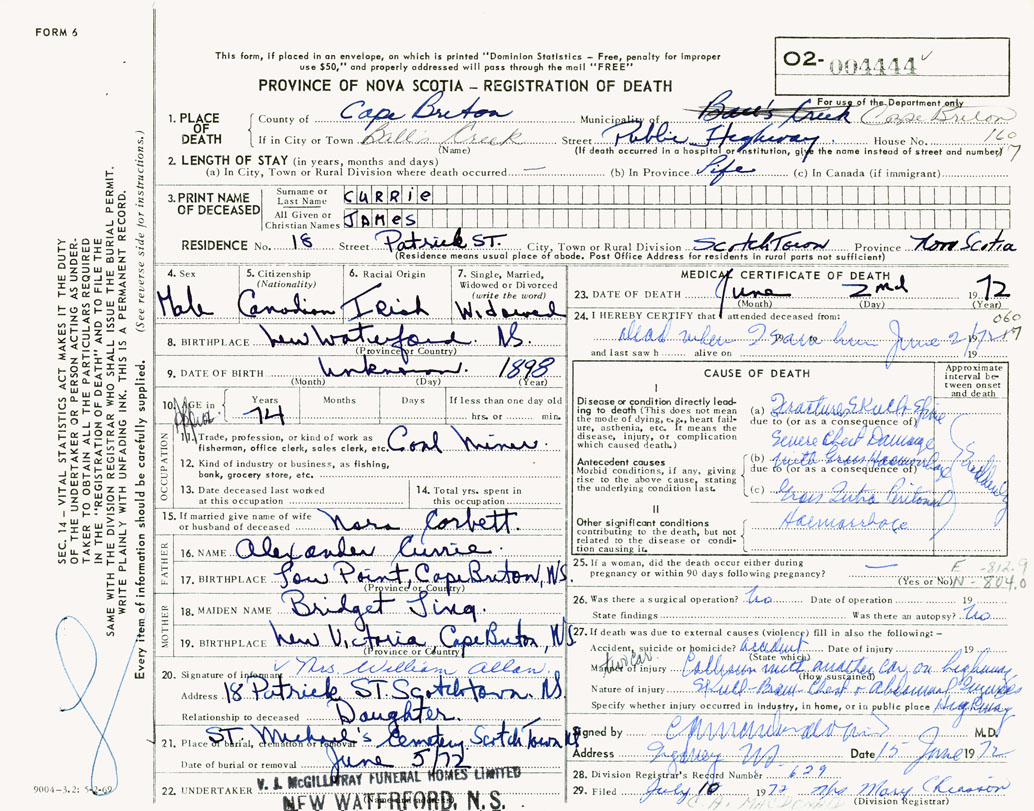 FORM 6
This form, if placed in an envelope, on which is printed "Dominion Statistics – Free, penalty for improper
use $50," and properly addressed will pass through the mail "FREE"
O2- 004444
For use of the Department only
PROVINCE OF NOVA SCOTIA – REGISTRATION OF DEATH
1. PLACE OF DEATH
County of Cape Breton Municipality of Cape Breton
If in City or Town Bell's Creek Street Public Highway House No. 160
(Name) (If death occurred in a hospital or institution, give the name instead of street and number) 17
2. LENGTH OF STAY (in years, months and days)
(a) In City, Town or Rural Division where death occurred — (b) In Province Life (c) In Canada (if immigrant)
3. PRINT NAME OF DECEASED
Surname or Last Name CURRIE
All Given or Christian Names JAMES
RESIDENCE No. 18 Street Patrick ST. City, Town or Rural Division Scotch Town Province Nova Scotia
(Residence means usual place of abode. Post Office Address for residents in rural parts not sufficient)
4. Sex Male
5. Citizenship (Nationality) Canadian
6. Racial Origin Irish
7. Single, Married, Widowed or Divorced (write the word) Widowed
8. BIRTHPLACE New Waterford N.S.
(Province or Country)
9. DATE OF BIRTH Unknown 1898
(Month) (Day) (Year)
10. AGE in Years 74 Months Days If less than one day old
hrs. or min.
OCCUPATION
11. Trade, profession, or kind of work as fisherman, office clerk, sales clerk, etc. Coal Miner
12. Kind of industry or business, as fishing, bank, grocery store, etc.
13. Date deceased last worked at this occupation
14. Total yrs. spent in this occupation
15. If married give name of wife or husband of deceased Nora Corbett.
FATHER
16. NAME Alexander Currie.
17. BIRTHPLACE Low Point, Cape Breton, N.S.
(Province or Country)
MOTHER
18. MAIDEN NAME Bridget
19. BIRTHPLACE New Victoria, Cape Breton, N.S.
(Province or Country)
20. Signature of informant Mrs William Allan.
Address 18 Patrick ST. Scotchtown. N.S.
Relationship to deceased Daughter.
21. Place of burial, cremation or removal ST. Michael's Cemetery Scotch Town N.S.
Date of burial or removal June 5/72
22. UNDERTAKER V. J. McGILLIVRAY FUNERAL HOMES LIMITED
NEW WATERFORD, N.S.
9004-3.2: 5-2-69
MEDICAL CERTIFICATE OF DEATH
23. DATE OF DEATH June 2nd 1972
(Month) (Day) (Year)
24. I HEREBY CERTIFY that I attended deceased from: 060
dead when I saw him June 2/72 19 17
and last saw h alive on 19
CAUSE OF DEATH
Approximate interval between onset and death
I
Disease or condition directly leading to death (This does not mean the mode of dying, e.g., heart failure, asthenia, etc. It means the disease, injury, or complication which caused death.)
(a) Fracture Skull Spine
due to (or as a consequence of)
Severe Chest Damage
Antecedent causes
Morbid conditions, if any, giving rise to the above cause, stating the underlying condition last.
(b) with Gross Haemorrhage
due to (or as a consequence of)
(c) Gross Intra Peritoneal
Haemorrhage
Suddenly
II
Other significant conditions contributing to the death, but not related to the disease or condition causing it.
25. If a woman, did the death occur either during pregnancy or within 90 days following pregnancy? —
(Yes or No)
E -812.9
N - 804.0
26. Was there a surgical operation? No Date of operation 19
State findings Was there an autopsy? No
27. If death was due to external causes (violence) fill in also the following: –
Accident, suicide or homicide? accident Date of injury 19
(State which)
Manner of injury two car Collision with another car on highway
(How sustained)
Nature of injury Skull-Brain-Chest & Abdominal Injuries
Specify whether injury occurred in industry, in home, or in public place Highway
Signed by M.D.
Address Sydney NS Date 15 June 1972
28. Division Registrar's Record Number 629
29. Filed July 10 1972 Mrs Mary Chiasson
(Division Registrar)
SEC. 14 – VITAL STATISTICS ACT MAKES IT THE DUTY
OF THE UNDERTAKER OR PERSON ACTING AS UNDERTAKER
TO OBTAIN ALL THE PARTICULARS REQUIRED
IN THE "REGISTRATION OF DEATH" AND TO FILE THE
SAME WITH THE DIVISION REGISTRAR WHO SHALL ISSUE THE BURIAL PERMIT.
WRITE PLAINLY WITH UNFADING INK. THIS IS A PERMANENT RECORD.
Every item of information should be carefully supplied. (See reverse side for instructions.)